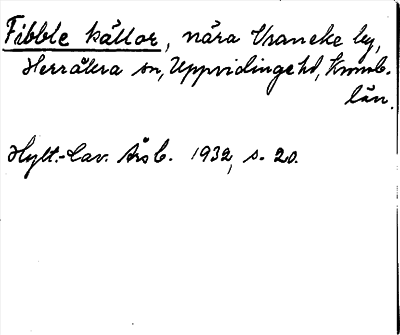 Fibble källor, nära Vrancke by,
Herråkra sn, Uppvidinge hd, Kronob.
län.
Hylt.-Cav. Årsb. 1932, s. 20.